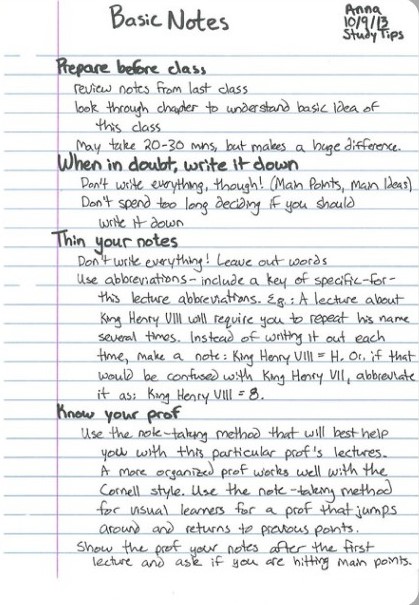 Basic Notes
Anna
10/9/13
Study Tips
Prepare before class
review notes from last class
look through chapter to understand basic idea of
this class
May take 20-30 mns, but makes a huge difference.
When in doubt, write it down
Don't write everything, though! (Main Points, main Ideas)
Don't spend too long deciding if you should
write it down
Thin your notes
Don't write everything! Leave out words
Use abbreviations - include a key of specific-for-
this lecture abbreviations. Eg.: A lecture about
King Henry VIII will require you to repeat his name
several times. Instead of writing it out each
time, make a note: King Henry VIII = H. Or, if that
would be confused with King Henry VII, abbreviate
it as: King Henry VIII = 8.
Know your prof
Use the note-taking method that will best help
you with this particular prof's lectures.
A more organized prof works well with the
Cornell style. Use the note-taking method
for visual learners for a prof that jumps
around and returns to previous points.
Show the prof your notes after the first
lecture and ask if you are hitting main points.